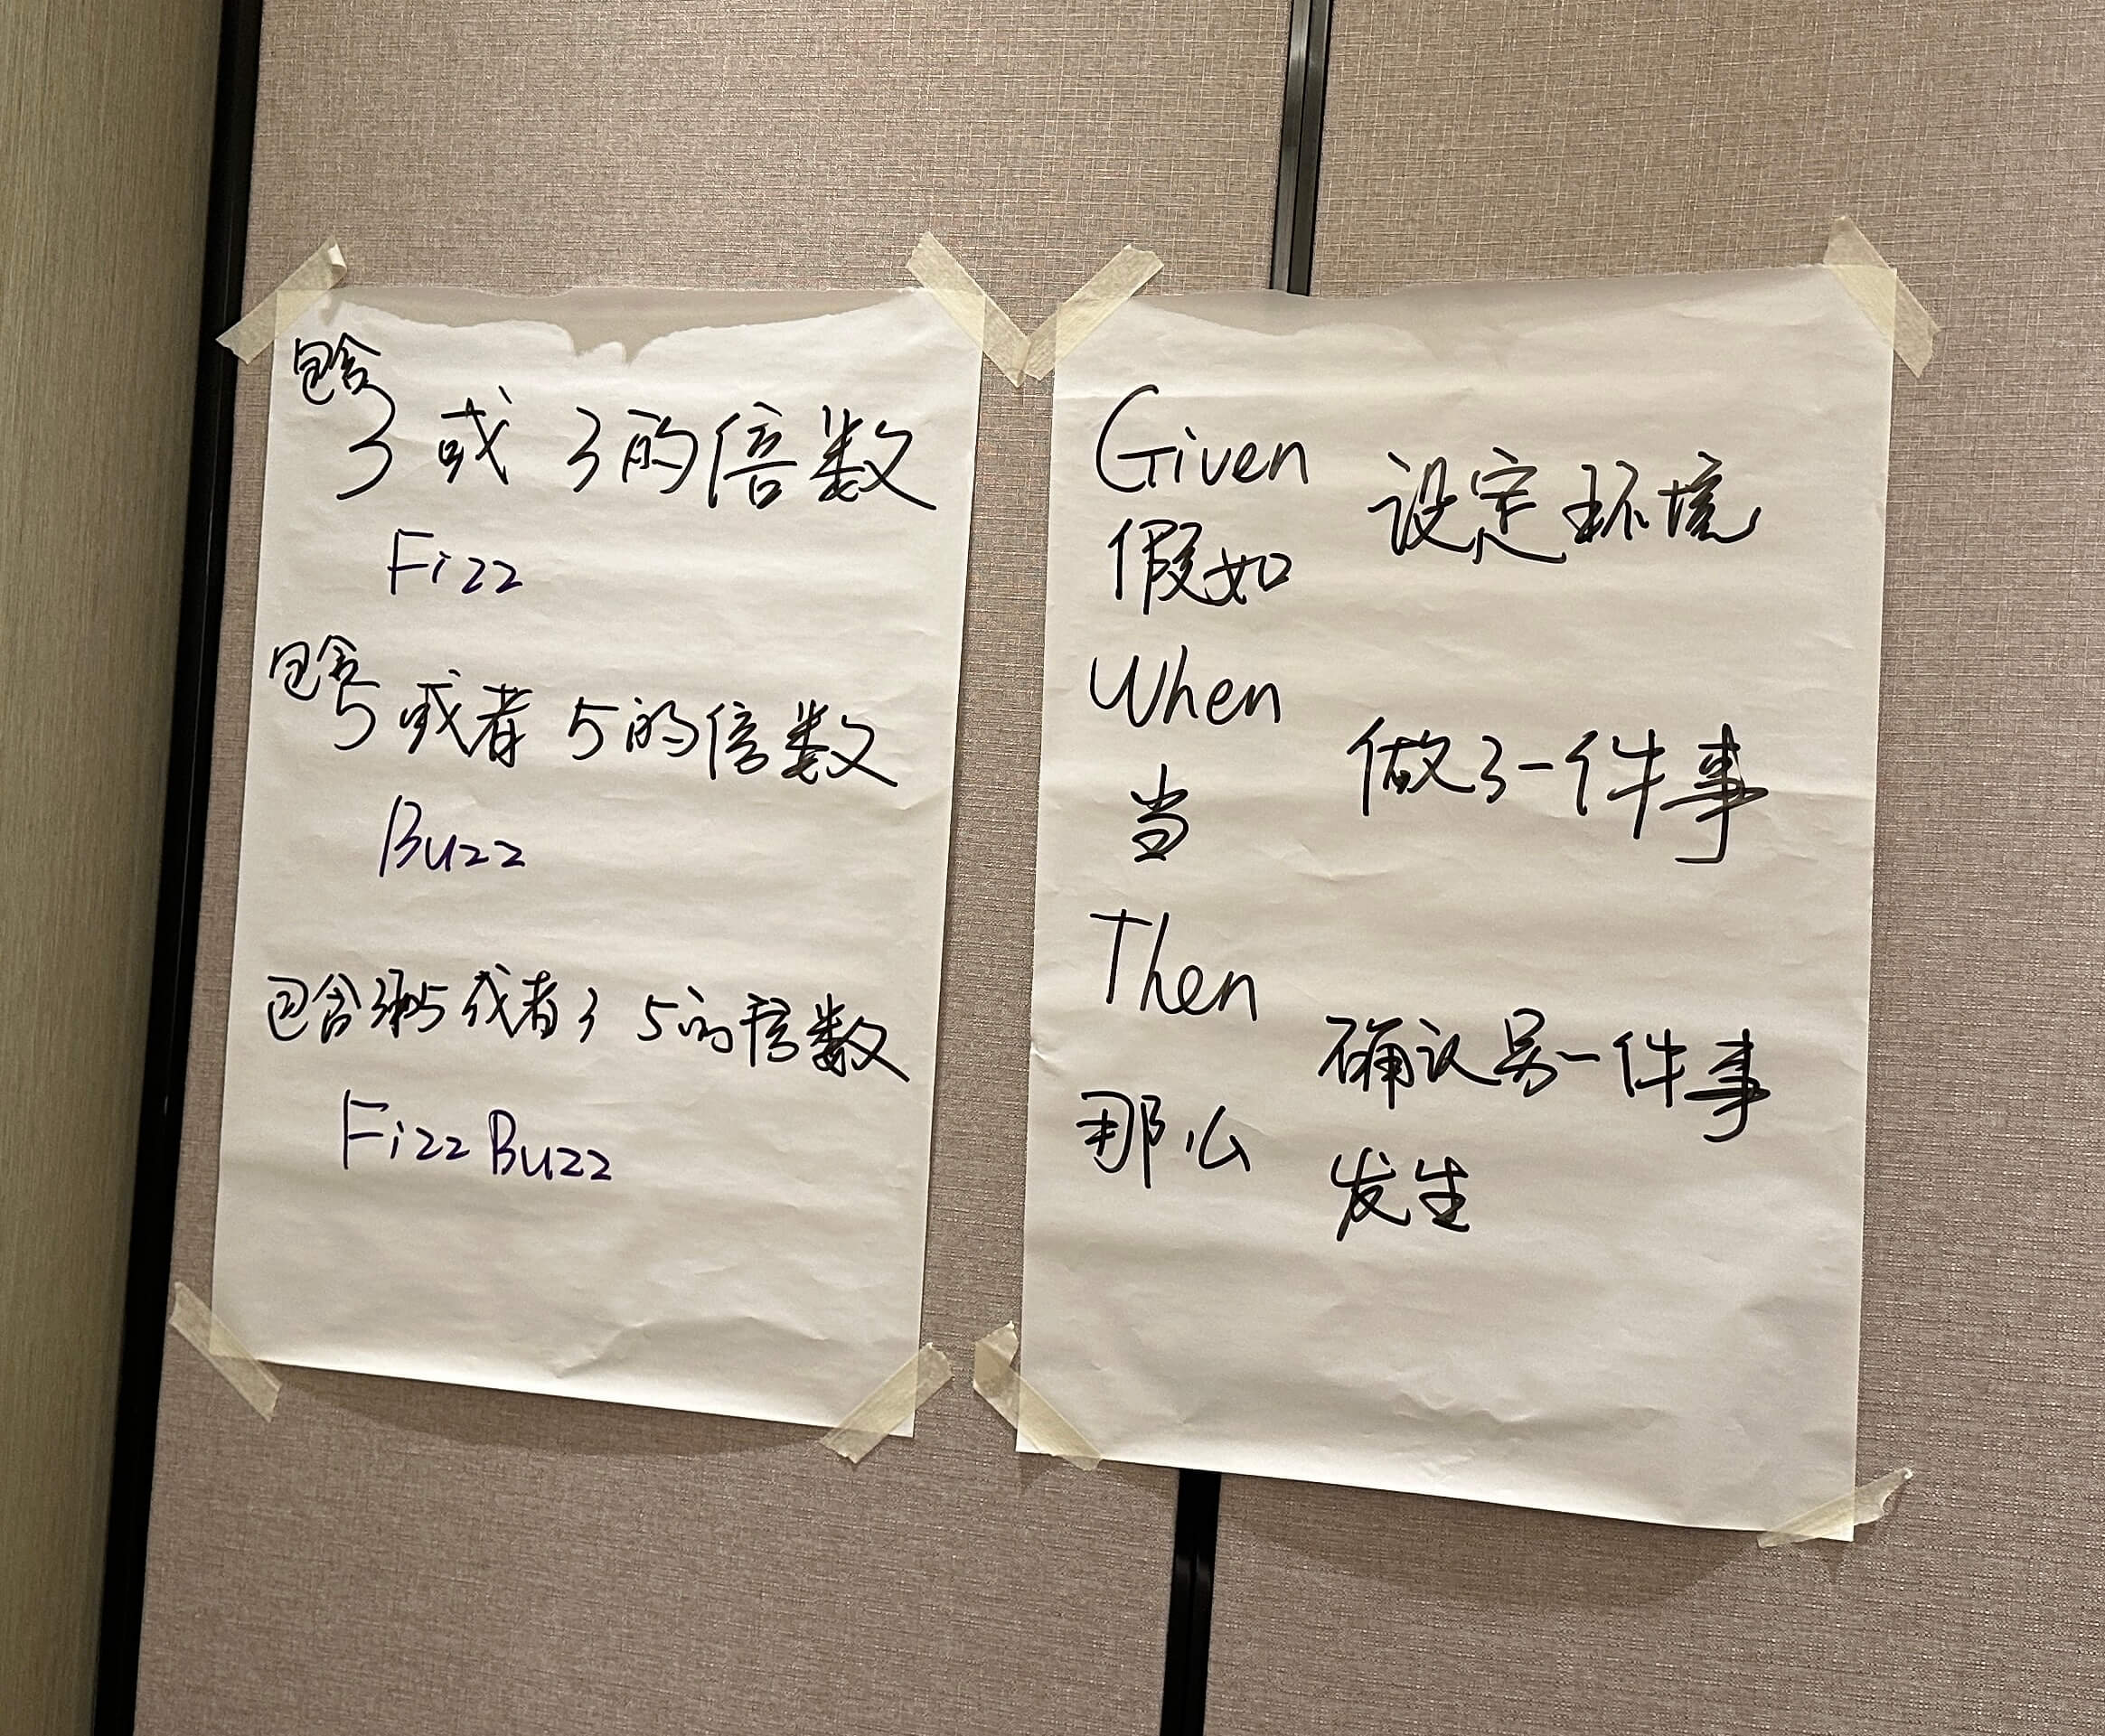 包含
3 或 3的倍数
Fizz
包含
5 或者 5的倍数
Buzz
包含3和5 或者 3 5的倍数
FizzBuzz
Given 设定环境
假如
When
做了一件事
当
Then
确认另一件事
那么
发生